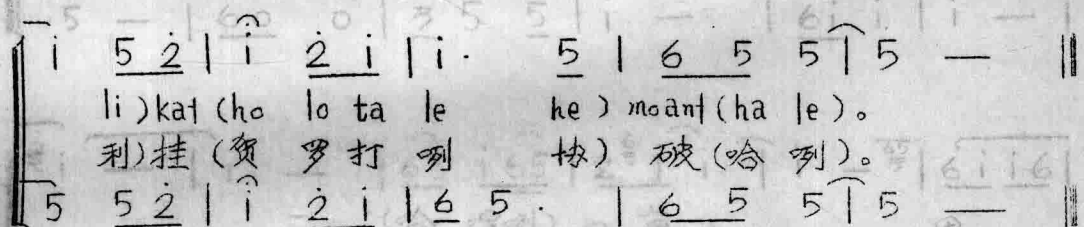 i 5 2̇ | i 2̇ i | i· 5 | 6 5 5 | 5 — ‖
li)kat (ho lo ta le he) moant (ha le)。
利)挂 (贺 罗打 咧 协) 破 (哈 咧)。
5 5 2̇ | i 2̇ i | 6 5· | 6 5 5 | 5 — ‖